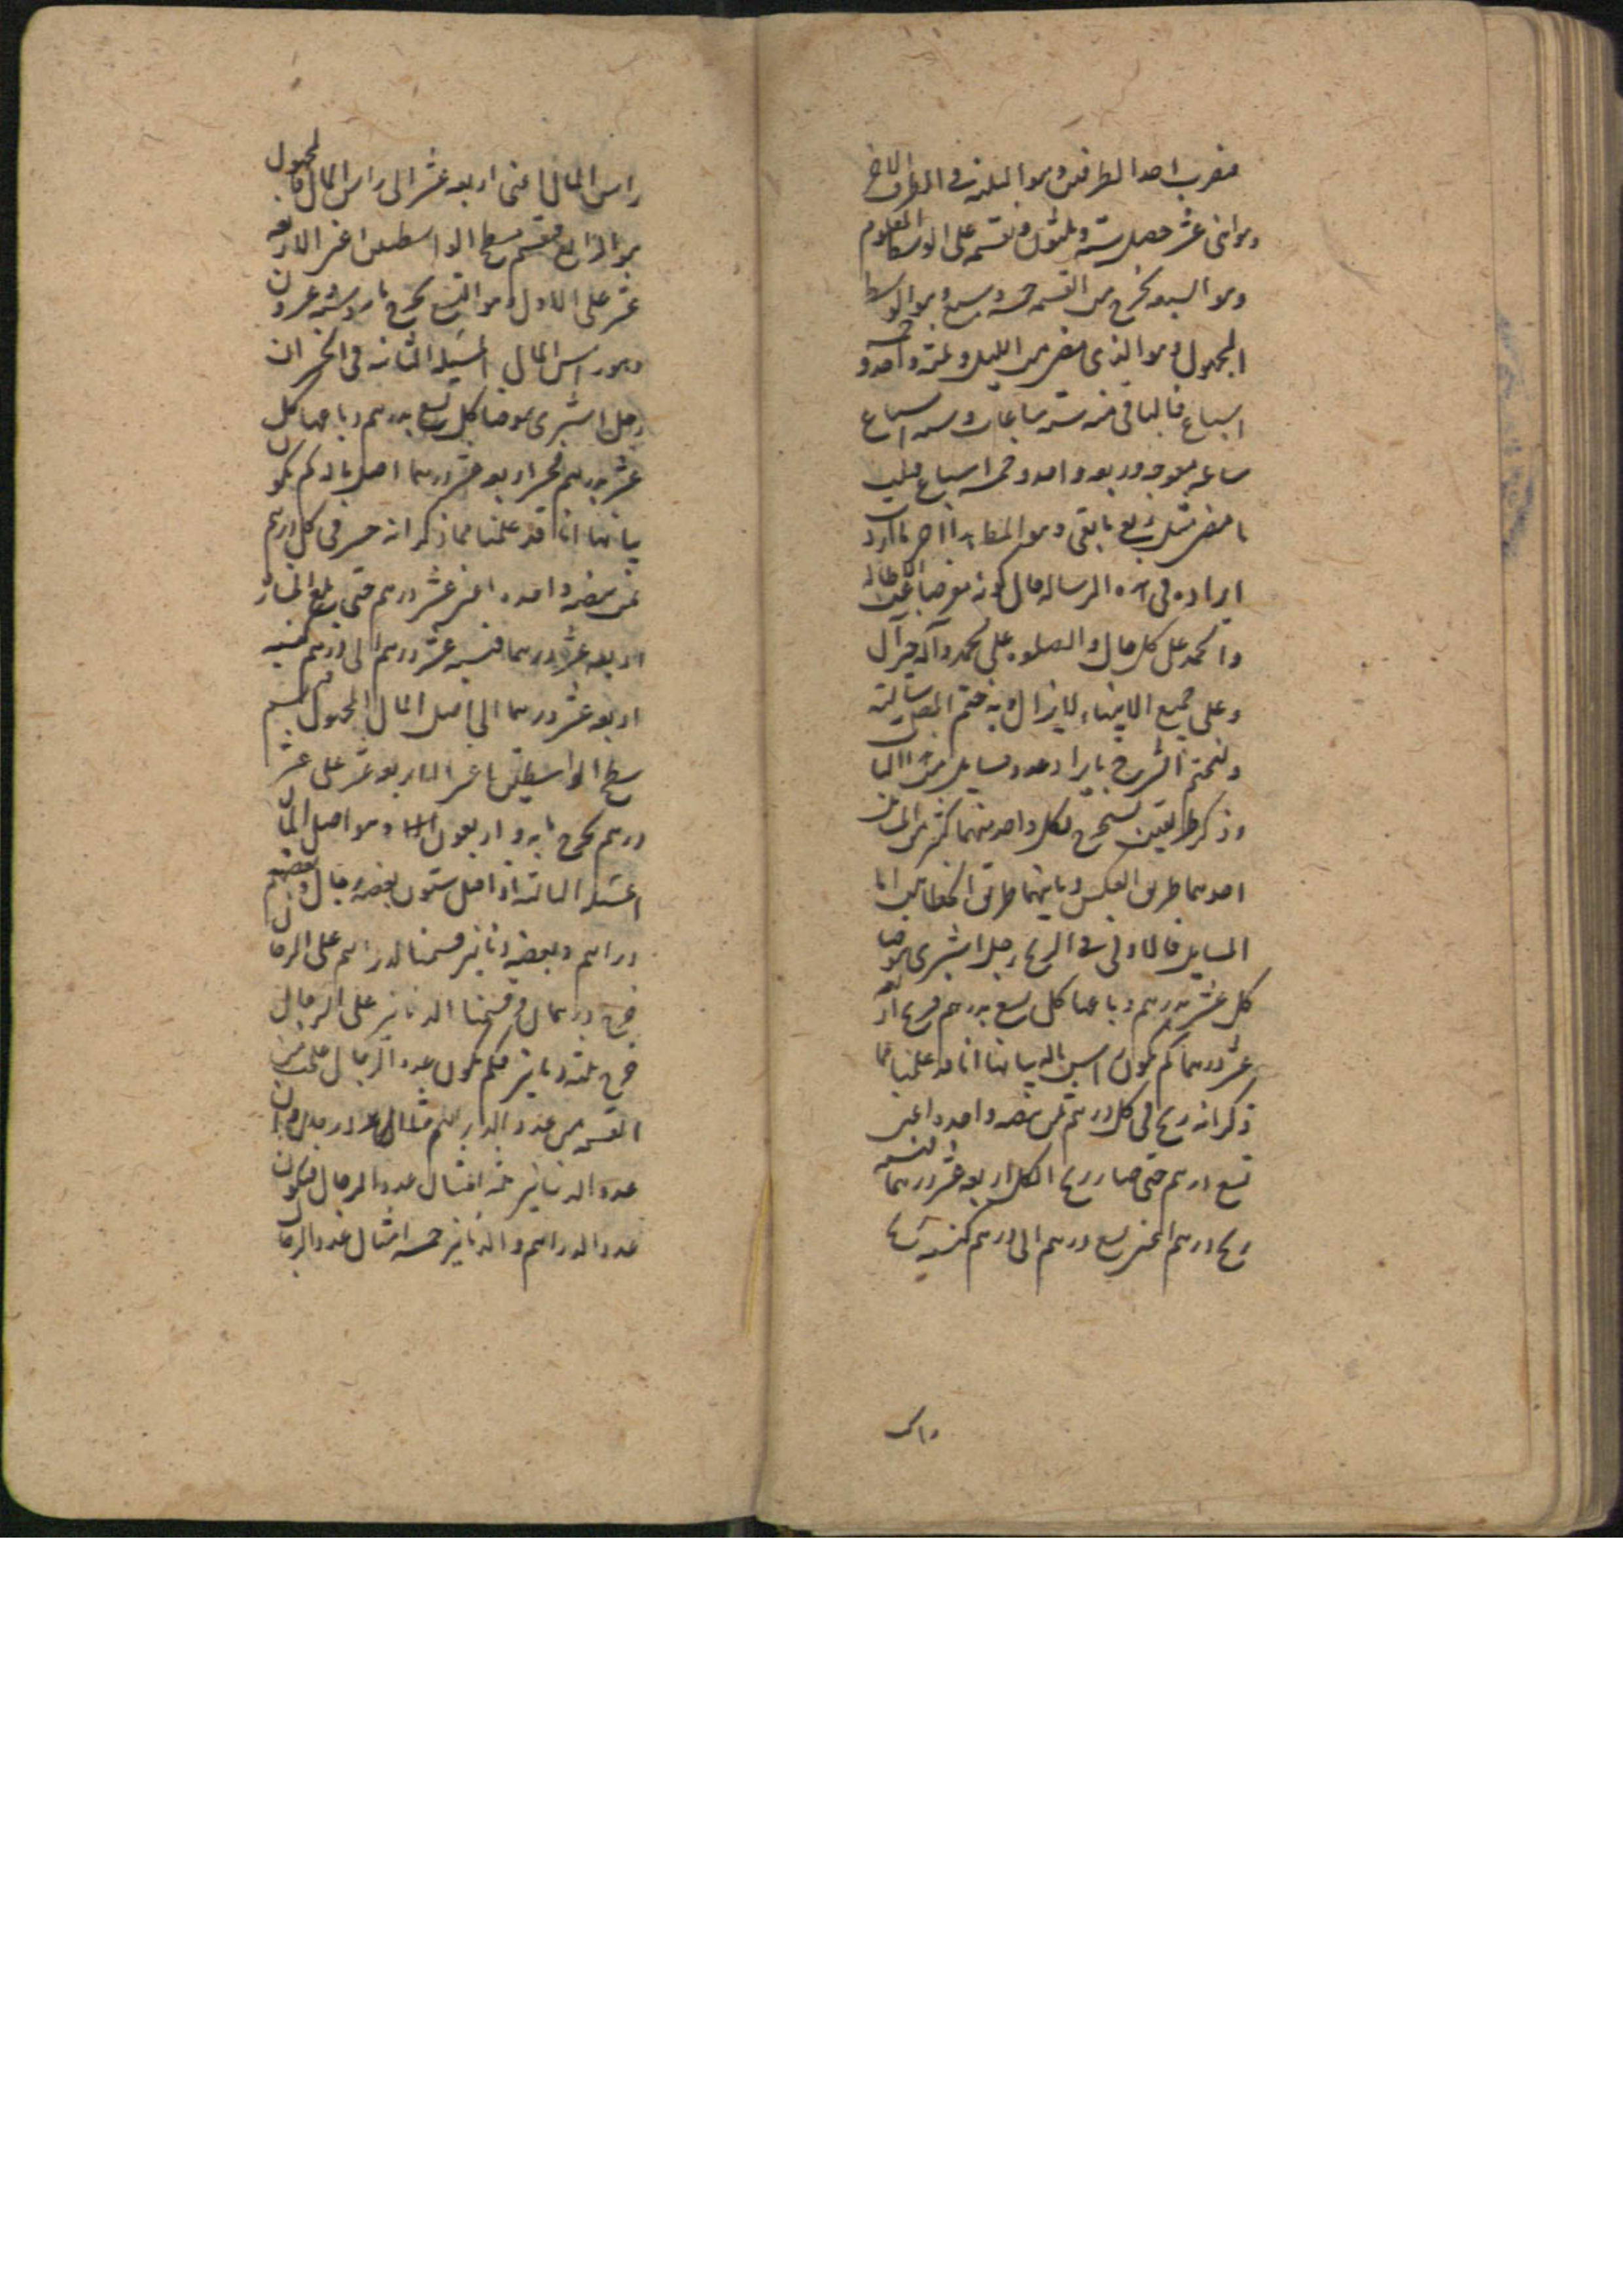 فنضرب احد الطرفين وهو الثلثة فى الطرف الاخر
وهو اثنى عشر حصل ستة وثلثون ونقسمه على الوسط المعلوم
وهو السبعه يخرج من القسمه خمسه وسبع وهو الوسط
المجهول وهو الذى مضى من الليل وثلثه واحد وخمسه
اسباع فالباقى منه ستة ساعات وسته اسباع
ساعه موجه وربعه واحد وخمسه اسباع فثلث
ما مضى مثل ربع ما بقى وهو المطلوب هذا اخر ما اردت
ايراده فى هذه الرساله حال كونه مفوضا
والحمد على كل حال والصلوه على محمد وآله خير آل
وعلى جميع الانبياء
ولنختم الشرح بايراد عدد مسايل من هذا الباب
وذكر طريقين تستخرج بكل واحد منهما كثير من المسائل
احدهما طريق العكس وثانيهما طريق الخطائين اما
المسايل فالاولى فى الربح رجل اشترى بيوضا
كل عشر بدرهم وباعها كل تسع بدرهم فربح اربعه
عشر درهما كم يكون راس ماله بيانها انا قد علمنا مما
ذكر انه ربح فى كل درهم ثمن بيضه واحده اعنى
تسع درهم حتى صار ربح الكل اربعه عشر درهما فنسبه
ربح درهم اعنى تسع درهم الى درهم كنسبة ربح
راس
راس المال اعنى اربعه عشر الى راس المال المجهول
هو الرابع فنقسم مسطح الواسطين اعنى الاربعه
عشر على الاول وهو التسع يخرج مايه وسته وعشرون
وهو راس المال المسئله الثانيه فى الخسران
رجل اشترى بيوضا كل تسع بدرهم وباعها كل
عشر بدرهم فخسر اربعه عشر درهما اصل ماله كم يكون
بيانها انا قد علمنا مما ذكر انه خسر فى كل درهم
ثمن بيضه واحده اعنى عشر درهم حتى بلغ الخساره
اربعه عشر درهما فنسبه عشر درهم الى درهم كنسبه
اربعه عشر درهما الى اصل المال المجهول فنقسم
مسطح الواسطين اعنى الاربعه عشر على عشر
درهم يخرج مايه واربعون وهو اصل المال
المسئله الثالثه اذا قيل ستون بعضه رجال وبعضه
دراهم وبعضه دنانير قسمنا الدراهم على الرجال
خرج درهمان وقسمنا الدنانير على الرجال
خرج ثلثه دنانير فكم يكون عدد الرجال علمت من
القسمه من عدد الدراهم مثلا عدد الرجال وان
عدد الدنانير ثلثه امثال عدد الرجال فيكون
عدد الدراهم والدنانير خمسه امثال عدد الرجال